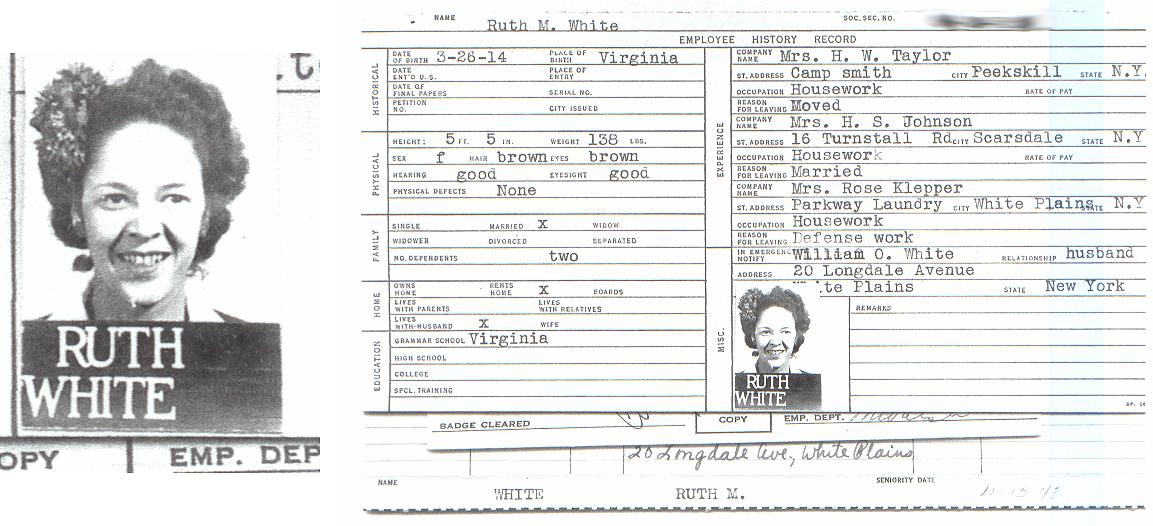 RUTH
WHITE
OPY EMP. DEP
NAME Ruth M. White SOC. SEC. NO.
EMPLOYEE HISTORY RECORD
HISTORICAL
DATE OF BIRTH 3-26-14 PLACE OF BIRTH Virginia
DATE ENT'D U.S. PLACE OF ENTRY
DATE OF FINAL PAPERS SERIAL NO.
PETITION NO. CITY ISSUED
PHYSICAL
HEIGHT: 5 FT. 5 IN. WEIGHT 138 LBS.
SEX f HAIR brown EYES brown
HEARING good EYESIGHT good
PHYSICAL DEFECTS None
FAMILY
SINGLE MARRIED X WIDOW
WIDOWER DIVORCED SEPARATED
NO. DEPENDENTS two
HOME
OWNS HOME RENTS HOME X BOARDS
LIVES WITH PARENTS LIVES WITH RELATIVES
LIVES WITH-HUSBAND X WIFE
EDUCATION
GRAMMAR SCHOOL Virginia
HIGH SCHOOL
COLLEGE
SPCL. TRAINING
EXPERIENCE
COMPANY NAME Mrs. H. W. Taylor
ST. ADDRESS Camp smith CITY Peekskill STATE N.Y.
OCCUPATION Housework RATE OF PAY
REASON FOR LEAVING Moved
COMPANY NAME Mrs. H. S. Johnson
ST. ADDRESS 16 Turnstall Rd CITY Scarsdale STATE N.Y
OCCUPATION Housework RATE OF PAY
REASON FOR LEAVING Married
COMPANY NAME Mrs. Rose Klepper
ST. ADDRESS Parkway Laundry CITY White Plains STATE N.Y
OCCUPATION Housework
REASON FOR LEAVING Defense work
MISC.
IN EMERGENCY NOTIFY William O. White RELATIONSHIP husband
ADDRESS 20 Longdale Avenue
te Plains STATE New York
REMARKS
RUTH
WHITE
BADGE CLEARED COPY EMP. DEPT.
20 Longdale Ave., White Plains
NAME WHITE RUTH M. SENIORITY DATE